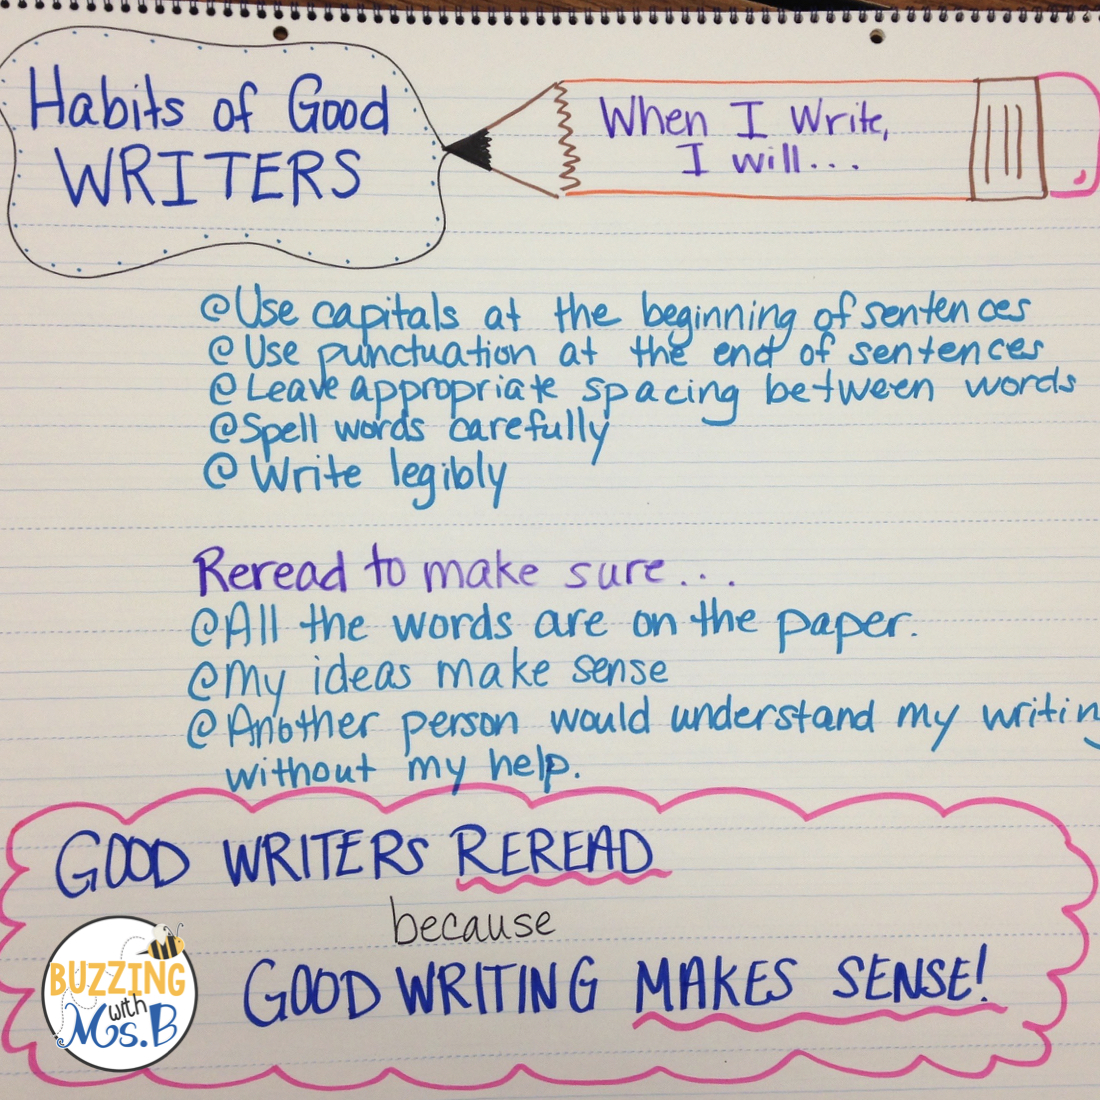 Habits of Good
WRITERS
When I Write,
I will...
@Use capitals at the beginning of sentences
@Use punctuation at the end of sentences
@Leave appropriate spacing between words
@Spell words carefully
@Write legibly
Reread to make sure...
@All the words are on the paper.
@My ideas make sense
@Another person would understand my writin
without my help.
GOOD WRITERS REREAD
because
GOOD WRITING MAKES SENSE!
BUZZING
with
Ms.B